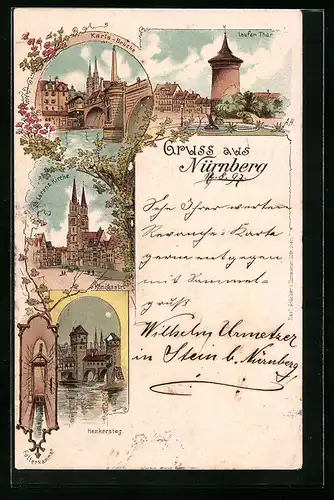 Karls-Brücke
Laufer Thor
Gruss aus
Nürnberg
Lorenz Kirche
Königstr.
Henkersteg.
Folterkammer
Sehe Ihrer werten
Revanche-Karte
gern entgegen
mit Sammel-
gruß
Wilhelm Urmetzer
in Stein b. Nürnberg